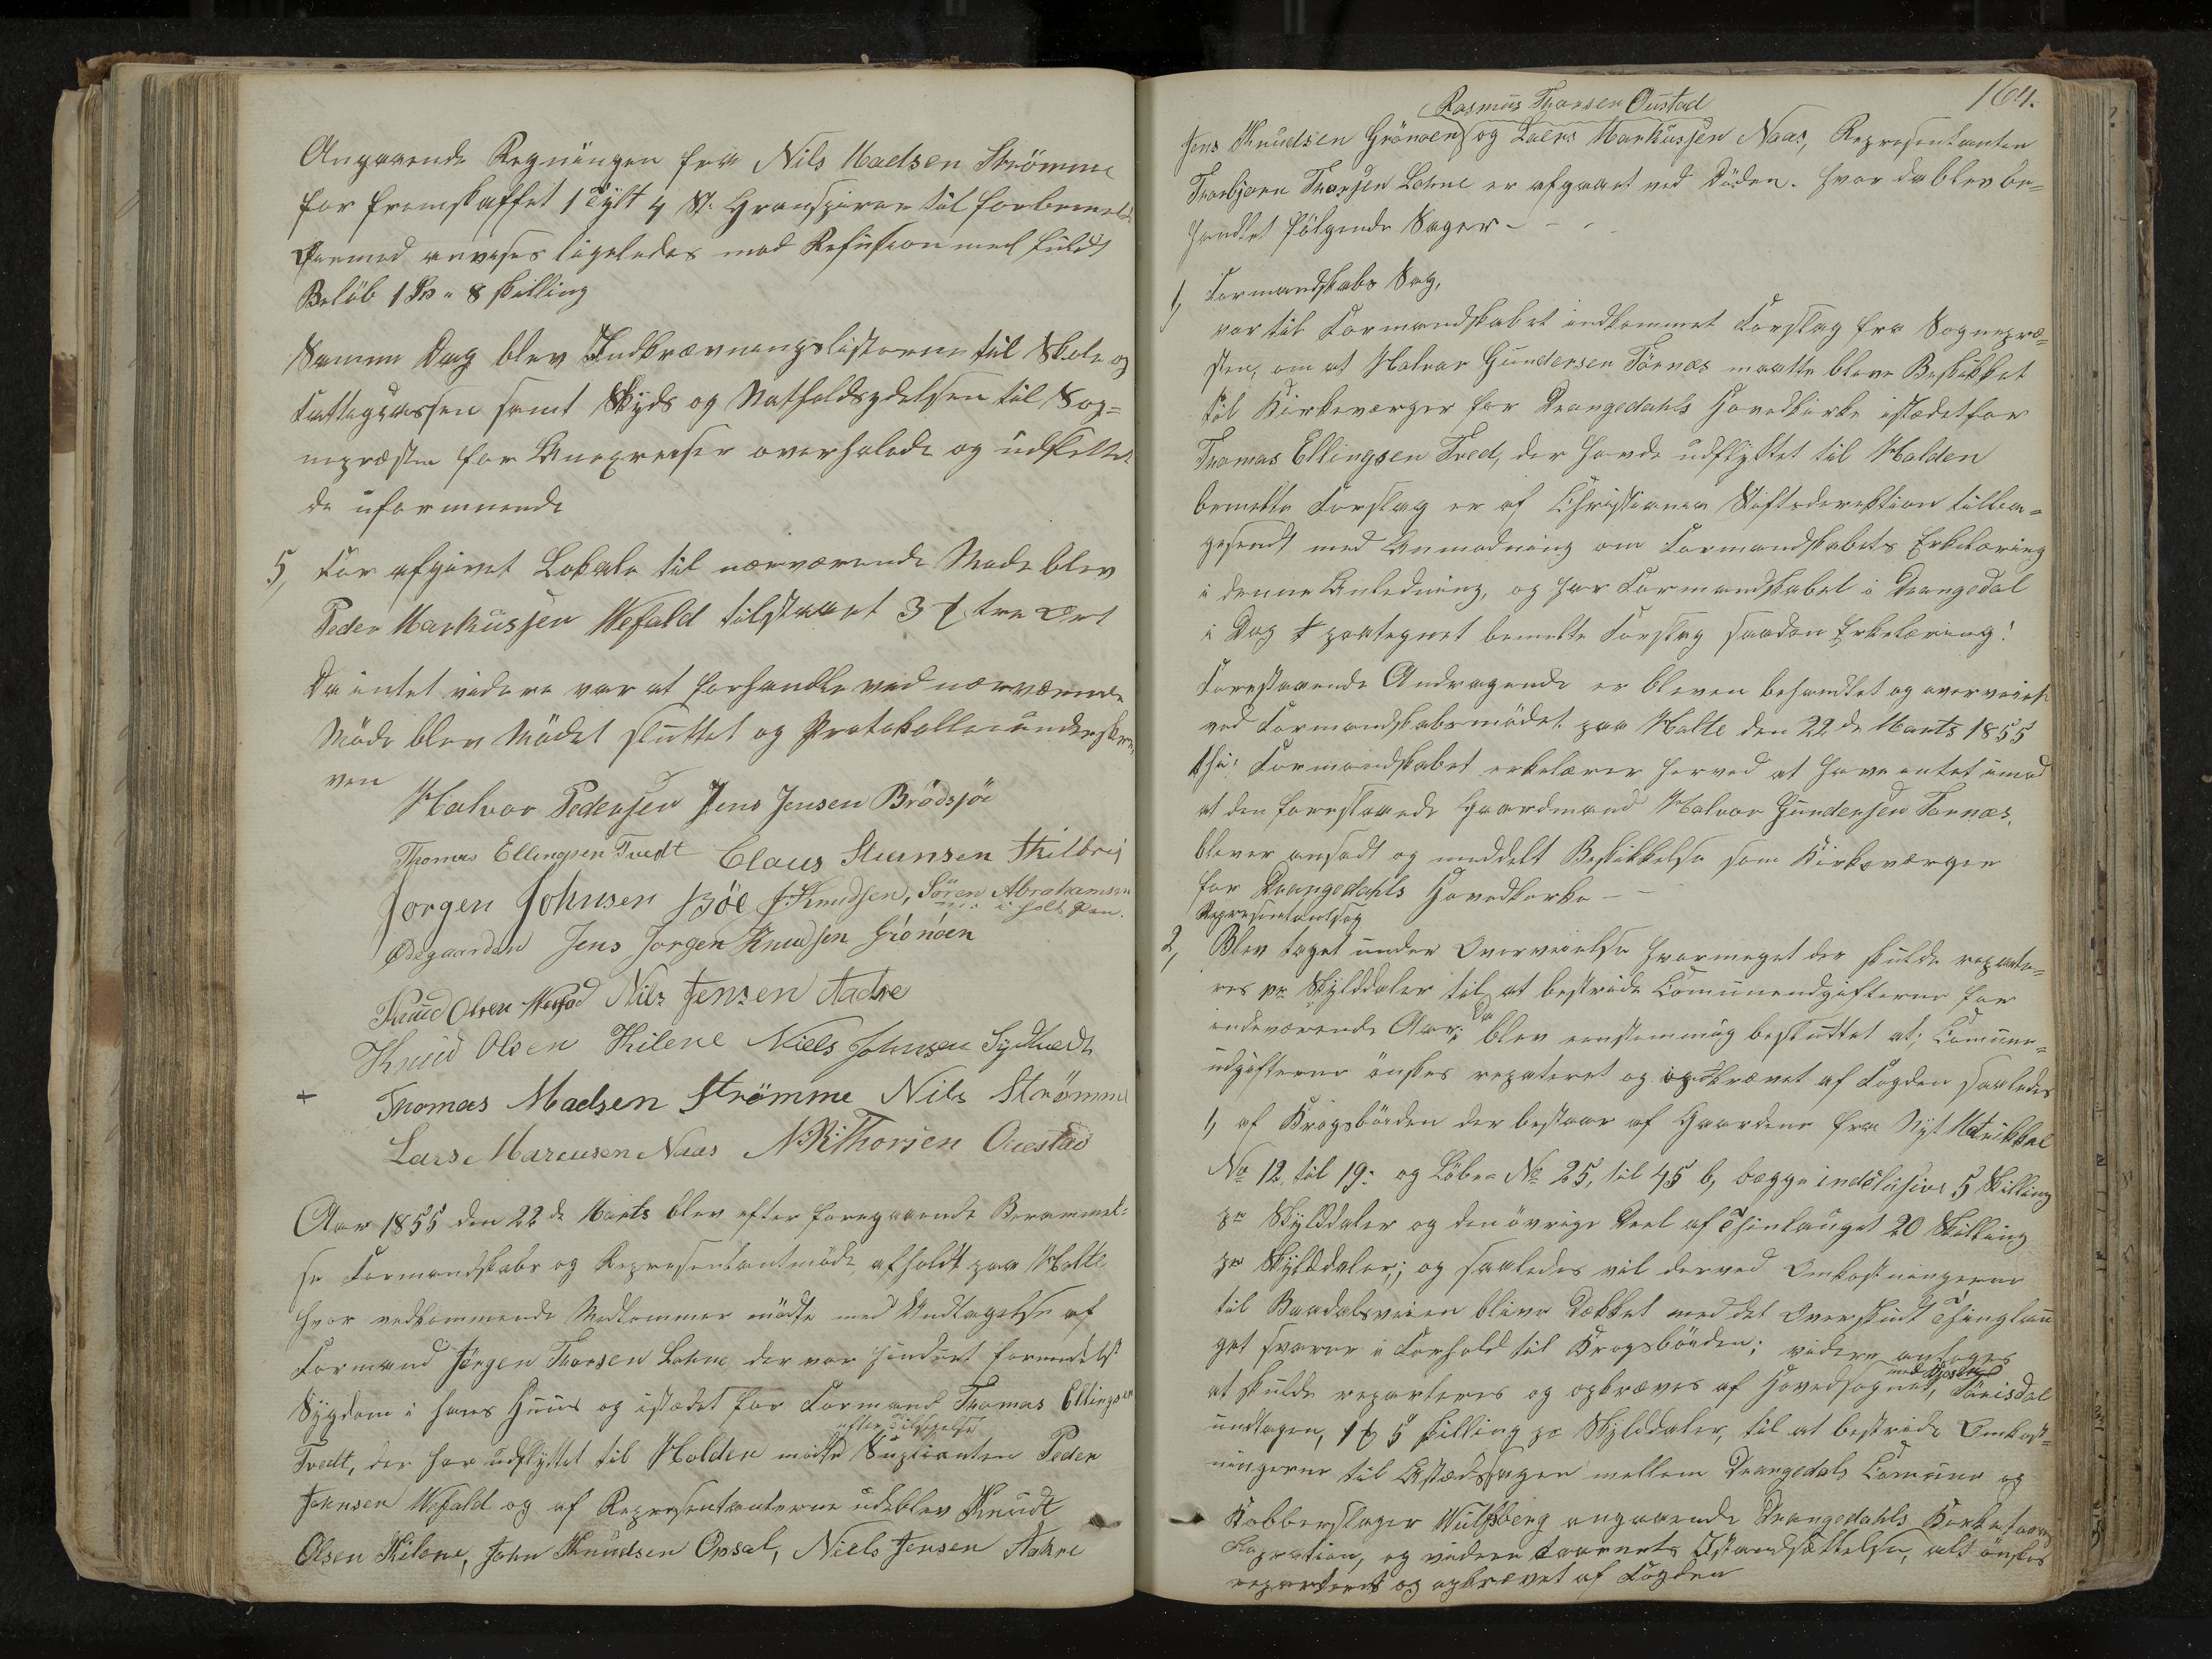 Angaaende Regningen fra Nils Madsen Strömme
for fremskaffet 1 Tylt 4 St. Granspirer til forbemeldte
Öiemed anvises ligeledes mod Refusion med fuldt
Beløb 1 Sp. " 8 skilling
Samme Dag blev Indkrævningslisterne til Skole og
Fattigcassen samt Skyds og Natholdsydelsen til Sog=
nepræsten for Annexreiser overhalede og udskillet
de uformuende
5, For afgivet Lokale til nærværende Møde blev
Peder Markussen Wefald tilstaaet 3 tre Ort
Da intet videre var at forhandle ved nærværende
Möde blev Mödet sluttet og Protokollen underskre
ven
Halvor Pedersen Jens Jensen Brödsjöe
Thomas Ellingsen Tvedt Claus Steensen Skilbrei
Jorgen Johnsen Böe J. Knudsen, Sören Abrahamsen
i holt Pen.
Ödegaarden Jens Jorgen Knudsen Grönöen
Knud Olsen Wefald Nils Jensen Aadne
Knud Olsen Kilene Niels Johnsen
+ Thomas Madsen Strömme Nils Strömme
Lars Marcusen Naas N. R. Thorsen Oustad
Aar 1855 den 22de Marts blev efter foregaaende Berammel=
se Formandskabs og Representantmöde afholdt paa Holte
hvor vedkommende Medlemmer mödte med Undtagelse af
Formand Jörgen Thorsen Lohne der var hindret formedelst
Sygdom i hans Huus og istædet for Formand Thomas Ellingsen
efter Tilsigelse
Tvedt, der har udflyttet til Holden mödte Suplianten Peder
Johnsen Wefald og af Representanterne udeblev Knudt
Olsen Kilene, John Knudsen Opsal, Niels Jensen Aadne
164.
Rasmus Thorsen Oustad
Jens Knudsen Grönoen og Laers Markussen Naas, Representanten
Thorbjörn Thorsen Lohne er afgaaet ved Döden. hvor da blev be=
handlet fölgende Sager - - -
1, Formandskabs Sag,
var til Formandskabet indkommet Forslag fra Sognepræ=
sten, om at Halvor Gundersen Törnæs maatte blive Beskikket
til Kirkeværger for Drangedahls Hovedkirke istædetfor
Thomas Ellingsen Tved, der havde udflyttet til Holden
bemeldte Forslag er af Christiania Stiftsdirektion tilba=
gesendt med Anmodning om Formandskabets Erklæring
i denne Anledning, og har Formandskabet i Drangedal
i Dag paategnet bemeldte Forslag saadan Erklæring!
Forestaaende Andragende er bleven behandlet og overveiet
ved Formandskabsmödet paa Holte den 22de Marts 1855
thi: Formandskabet erklærer herved at have intet imod
at den forestaaende Gaardmand Halvor Gundersen Tornæs,
bliver ansadt og meddelt Beskikkelse som Kirkeværger
for Drangedahls Hovedkirke -
Representantsag
2, Blev taget under Overveielse hvormeget der skulde reparte=
res pr Skylddaler til at bestride Comuneudgifterne for
indeværende Aar. Da blev eenstemmig besluttet at; Comune=
udgifterne önskes reparteret og opkrævet af Fogden saaledes
1, af Krogsböiden der bestaar af Gaardene fra Nyt Matrikkel
No 12, til 19: og Löbe= No 25, til 45 b, begge indclusive 5 Skilling
pr Skylddaler og den övrige Deel af Thinlauget 20 Skilling
pr Skylddaler; og saaledes vil derved Omkostningerne
til Baadalsveien blive Dækket med det Overskudt Thinglau
get svarer i Forhold til Krogsböiden; videre antages
at skulde reparteres og opkræves af Hovedsognet, Törisdal
undtagen, 5 skilling pr Skylddaler, til at bestride Omkost=
ningerne til Astædssagen mellem Drangedals Comune og
Kobberslager Wulfsberg angaaende Drangedahls Kirketaarn
Repration, og videre taarnets Istandsættelse, alt önskes
reparteret og opkrævet af Fogden